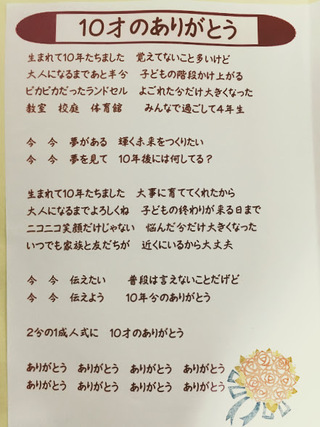 10才のありがとう
生まれて10年たちました　覚えてないこと多いけど
大人になるまであと半分　子どもの階段かけ上がる
ピカピカだったランドセル　よごれた分だけ大きくなった
教室　校庭　体育館　みんなで過ごして4年生
今　今　夢がある　輝く未来をつくりたい
今　今　夢を見て　10年後には何してる？
生まれて10年たちました　大事に育ててくれたから
大人になるまでよろしくね　子どもの終わりが来る日まで
ニコニコ笑顔だけじゃない　悩んだ分だけ大きくなった
いつでも家族と友だちが　近くにいるから大丈夫
今　今　伝えたい　普段は言えないことだけど
今　今　伝えよう　10年分のありがとう
2分の1成人式に　10才のありがとう
ありがとう　ありがとう　ありがとう　ありがとう
ありがとう　ありがとう　ありがとう　ありがとう